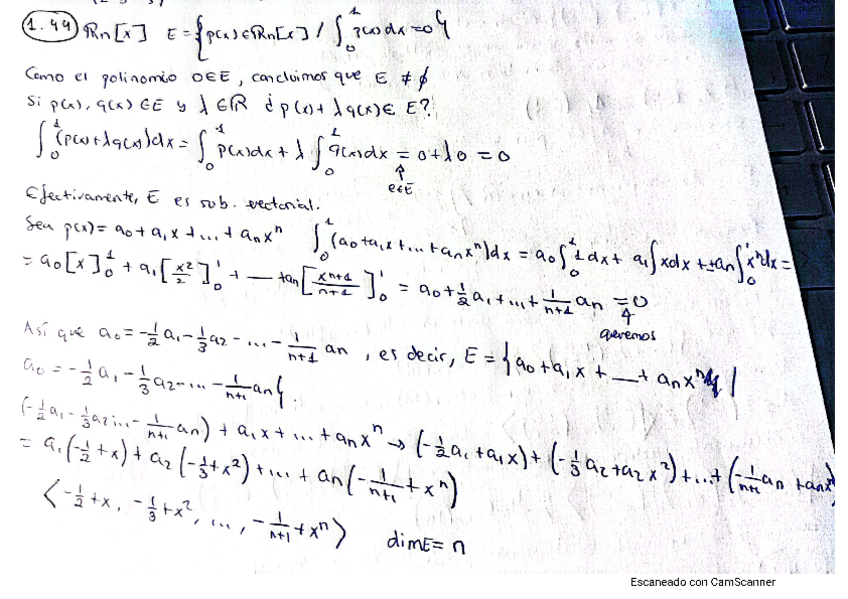 1.44 Rn[x] E = { p(x) ∈ Rn[x] / ∫₀¹ p(x)dx = 0 }
Como el polinomio 0∈E, concluimos que E ≠ ∅
Si p(x), q(x) ∈ E y λ ∈ R ¿ p(x) + λq(x) ∈ E?
∫₀¹ (p(x)+λq(x))dx = ∫₀¹ p(x)dx + λ ∫₀¹ q(x)dx = 0+λ0 = 0
Efectivamente, E es sub. vectorial.
Sea p(x) = a₀ + a₁x + ... + aₙxⁿ ∫₀¹ (a₀+a₁x+...+aₙxⁿ)dx = a₀∫₀¹ 1dx + a₁∫xdx + ... + aₙ∫₀¹ xⁿdx =
= a₀[x]₀¹ + a₁[x²/2]₀¹ + — + aₙ[xⁿ⁺¹/n+1]₀¹ = a₀ + 1/2 a₁ + ... + 1/n+1 aₙ = 0
queremos
Así que a₀ = -1/2 a₁ - 1/3 a₂ - ... - 1/n+1 aₙ , es decir, E = { a₀ + a₁x + — + aₙxⁿ /
a₀ = -1/2 a₁ - 1/3 a₂ - ... - 1/n+1 aₙ }.
(-1/2 a₁ - 1/3 a₂ ... - 1/n+1 aₙ) + a₁x + ... + aₙxⁿ → (-1/2 a₁ + a₁x) + (-1/3 a₂ + a₂x²) + ... + (-1/n+1 aₙ + aₙxⁿ
= a₁(-1/2 + x) + a₂(-1/3 + x²) + ... + aₙ(-1/n+1 + xⁿ)
⟨-1/2 + x, -1/3 + x², ..., -1/n+1 + xⁿ⟩ dimE = n
Escaneado con CamScanner